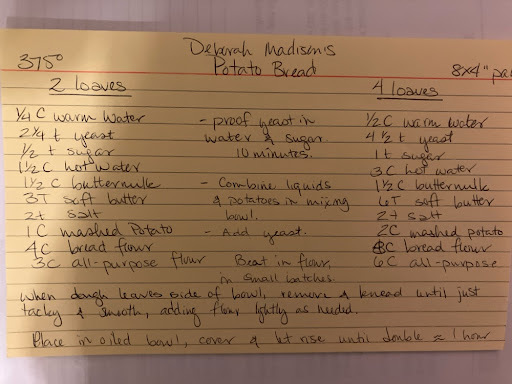 Deborah Madison's
375° Potato Bread 8x4" pa
2 loaves 4 loaves
1/4 C warm water - proof yeast in 1/2 C warm water
2 1/4 t yeast water & sugar 4 1/2 t yeast
1/2 t sugar 10 minutes. 1 t sugar
1 1/2 C hot water 3 C hot water
1 1/2 C buttermilk - Combine liquids 1 1/2 C buttermilk
3T soft butter & potatoes in mixing 6T soft butter
2t salt bowl. 2t salt
1C mashed potato - Add yeast. 2C mashed potato
4C bread flour 8C bread flour
3C all-purpose flour Beat in flour, 6C all-purpose
in small batches.
When dough leaves side of bowl, remove & knead until just
tacky & smooth, adding flour lightly as needed.
Place in oiled bowl, cover & let rise until double ≈ 1 hour